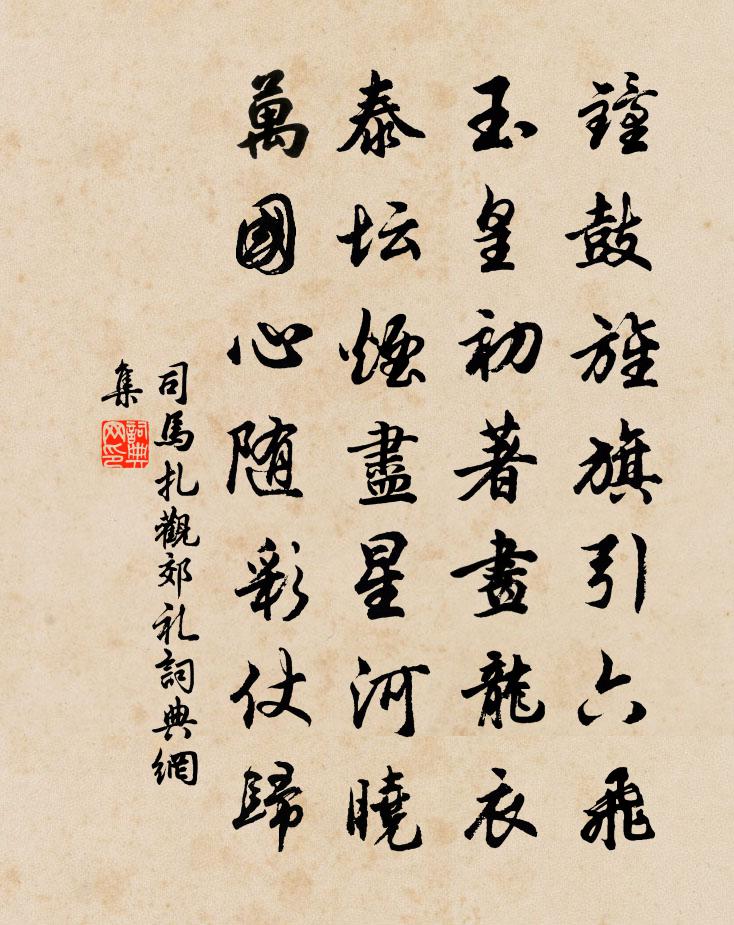 鐘鼓旌旗引六飛
玉皇初著畫龍衣
泰坛煙盡星河曉
萬國心随彩仗歸
司馬扎觀郊礼詞典網
集
詞典网印